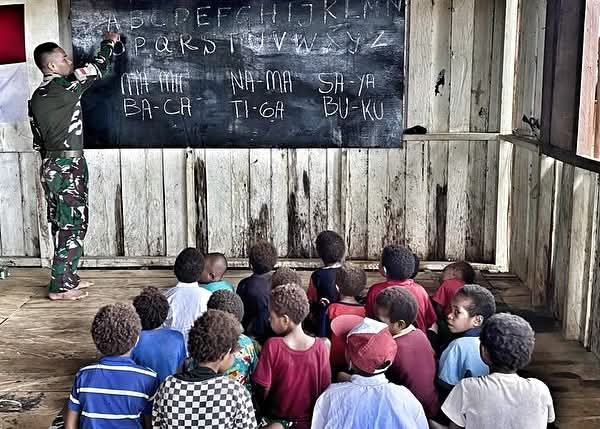 A B C D E F G H I J K L M N
O P Q R S T U V W X Y Z
MA-MA NA-MA SA-YA
BA-CA TI-GA BU-KU